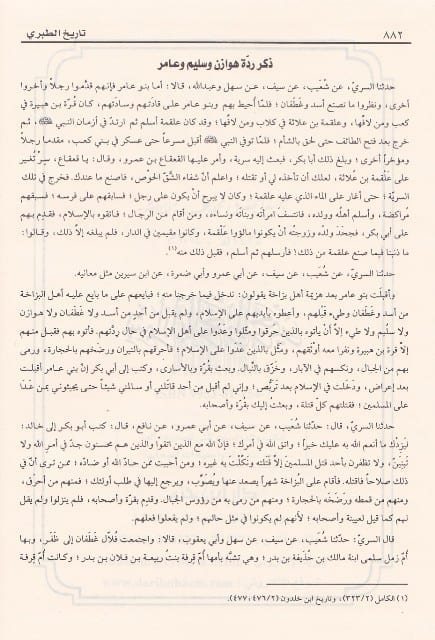 ٨٨٢
تاريخ الطبري
ذكر ردّة هوازن وسليم وعامر
حدثنا السريّ، عن شُعَيب، عن سيف، عن سهل وعبدالله، قالا: أما بنو عامر فإنهم قدَّموا رجلًا وأخروا
أخرى، ونظروا ما تصنع أسد وغَطَفان؛ فلمّا أحيط بهم وبنو عامر على قادتهم وسادتهم، كان قُرّة بن هبيرة في
كعب ومن لافّها، وعلقمة بن عُلاثة في كلاب ومن لافَّها؛ وقد كان علقمة أسلم ثم ارتدّ في أزمان النبي ﷺ، ثم
خرج بعد فتح الطائف حتى لحق بالشأم؛ فلمّا توفي النبي ﷺ أقبل مسرعاً حتى عسكر في بني كعب، مقدماً رجلاً
ومؤخراً أخرى؛ وبلغ ذلك أبا بكر، فبعث إليه سرية، وأمر عليها القعقاع بن عمرو، وقال: يا قعقاع، سِرْ تُغير
على عَلْقمة بن عُلاثة، لعلك أن تأخذه لي أو تقتله؛ واعلم أنّ شفاء الشَّقّ الحَوْص، فاصنع ما عندك. فخرج في تلك
السريّة؛ حتى أغار على الماء الذي عليه علقمة؛ وكان لا يبرح أنْ يكون على رجل؛ فسابقهم على فرسه؛ فسبقهم
مُراكضة، وأسلم أهلُه وولده، فانتسف امرأته وبناته ونساءه، ومن أقام من الرجال؛ فاتقوه بالإسلام، فقدم بهم
على أبي بكر، فجحد ولده وزوجته أن يكونوا مالؤوا علقمة، وكانوا مقيمين في الدار، فلم يبلغه إلّا ذلك، وقالوا:
ما ذنبنا فيما صنع علقمة من ذلك! فأرسلهم ثم أسلم، فقبل ذلك منه(١).
حدثنا السريّ، عن شُعَيب، عن سيف، عن أبي عمرو وأبي ضمرة، عن ابن سيرين مثل معانيه.
وأقبلَت بنو عامر بعد هزيمة أهل بزاخة يقولون: ندخل فيما خرجنا منه؛ فبايعهم على ما بايع عليه أهل البزاخة
من أسد وغَطَفان وطيّء قبلهم، وأعطوه بأيديهم على الإسلام، ولم يقبل من أحدٍ من أسد ولا غَطَفان ولا هوازن
ولا سليم ولا طيّء إلّا أنْ يأتوه بالذين حرقوا ومثّلوا وعدَوْا على أهل الإسلام في حال رِدّتهم. فأتوه بهم فقبل منهم
إلّا قرّة بن هبيرة ونفراً معه أوثقهم، ومثّل بالذين عدَوْا على الإسلام؛ فأحرقهم بالنيران ورضخهم بالحجارة، ورمى
بهم من الجبال، ونكسهم في الآبار، وخزّق بالنبال. وبعث بقُرّة وبالأسارى، وكتب إلى أبي بكر إنّ بني عامر أقبلت
بعد إعراض، ودخَلَت في الإسلام بعد تربُّص؛ وإني لم أقبل من أحد قاتلَني أو سالمَني شيئاً حتى يجيئوني بمن عَدَا
على المسلمين؛ فقتلتهم كلّ قتلة، وبعثت إليك بقرّة وأصحابه.
حدثنا السريّ، قال: حدثنا شُعَيب، عن سيف، عن أبي عمرو، عن نافع، قال: كتب أبو بكر إلى خالد:
ليَزِدْكَ ما أنعم الله به عليك خيراً؛ واتق الله في أمرك؛ فإنّ الله مع الذين اتقوا والذين هم محسنون جدّ في أمرِ الله ولا
تَنِيَنَّ، ولا تظفرن بأحد قتل المسلمين إلّا قتلته ونكَّلْتَ به غيره؛ ومن أحببت ممن حادّ الله أو ضادّه؛ ممن ترى أنّ في
ذلك صلاحاً فاقتله. فأقام على البُزاخة شهراً يصعد عنها ويُصوّب، ويرجع إليها في طلب أولئك؛ فمنهم من أحرق،
ومنهم من قمطه ورَضَخَه بالحجارة؛ ومنهم من رمى به من رؤوس الجبال. وقدِم بقرّة وأصحابه، فلم ينزلوا ولم يقل
لهم كما قيل لعيينة وأصحابه؛ لأنهم لم يكونوا في مثل حالهم؛ ولم يفعلوا فعلهم.
قال السريّ: حدثنا شُعَيب، عن سيف، عن سهل وأبي يعقوب، قالا: واجتمعت فُلّال غَطَفان إلى ظَفَر، وبها
أمّ زِمْل سلمى ابنة مالك بن حُذيفة بن بدر؛ وهي تشبَّه بأمها أمّ قِرفة بنت ربيعة بن فلان بن بدر؛ وكانت أمّ قِرفة
(١) الكامل (٣٢٣/٢)، وتاريخ ابن خلدون (٤٧٦/٢، ٤٧٧).